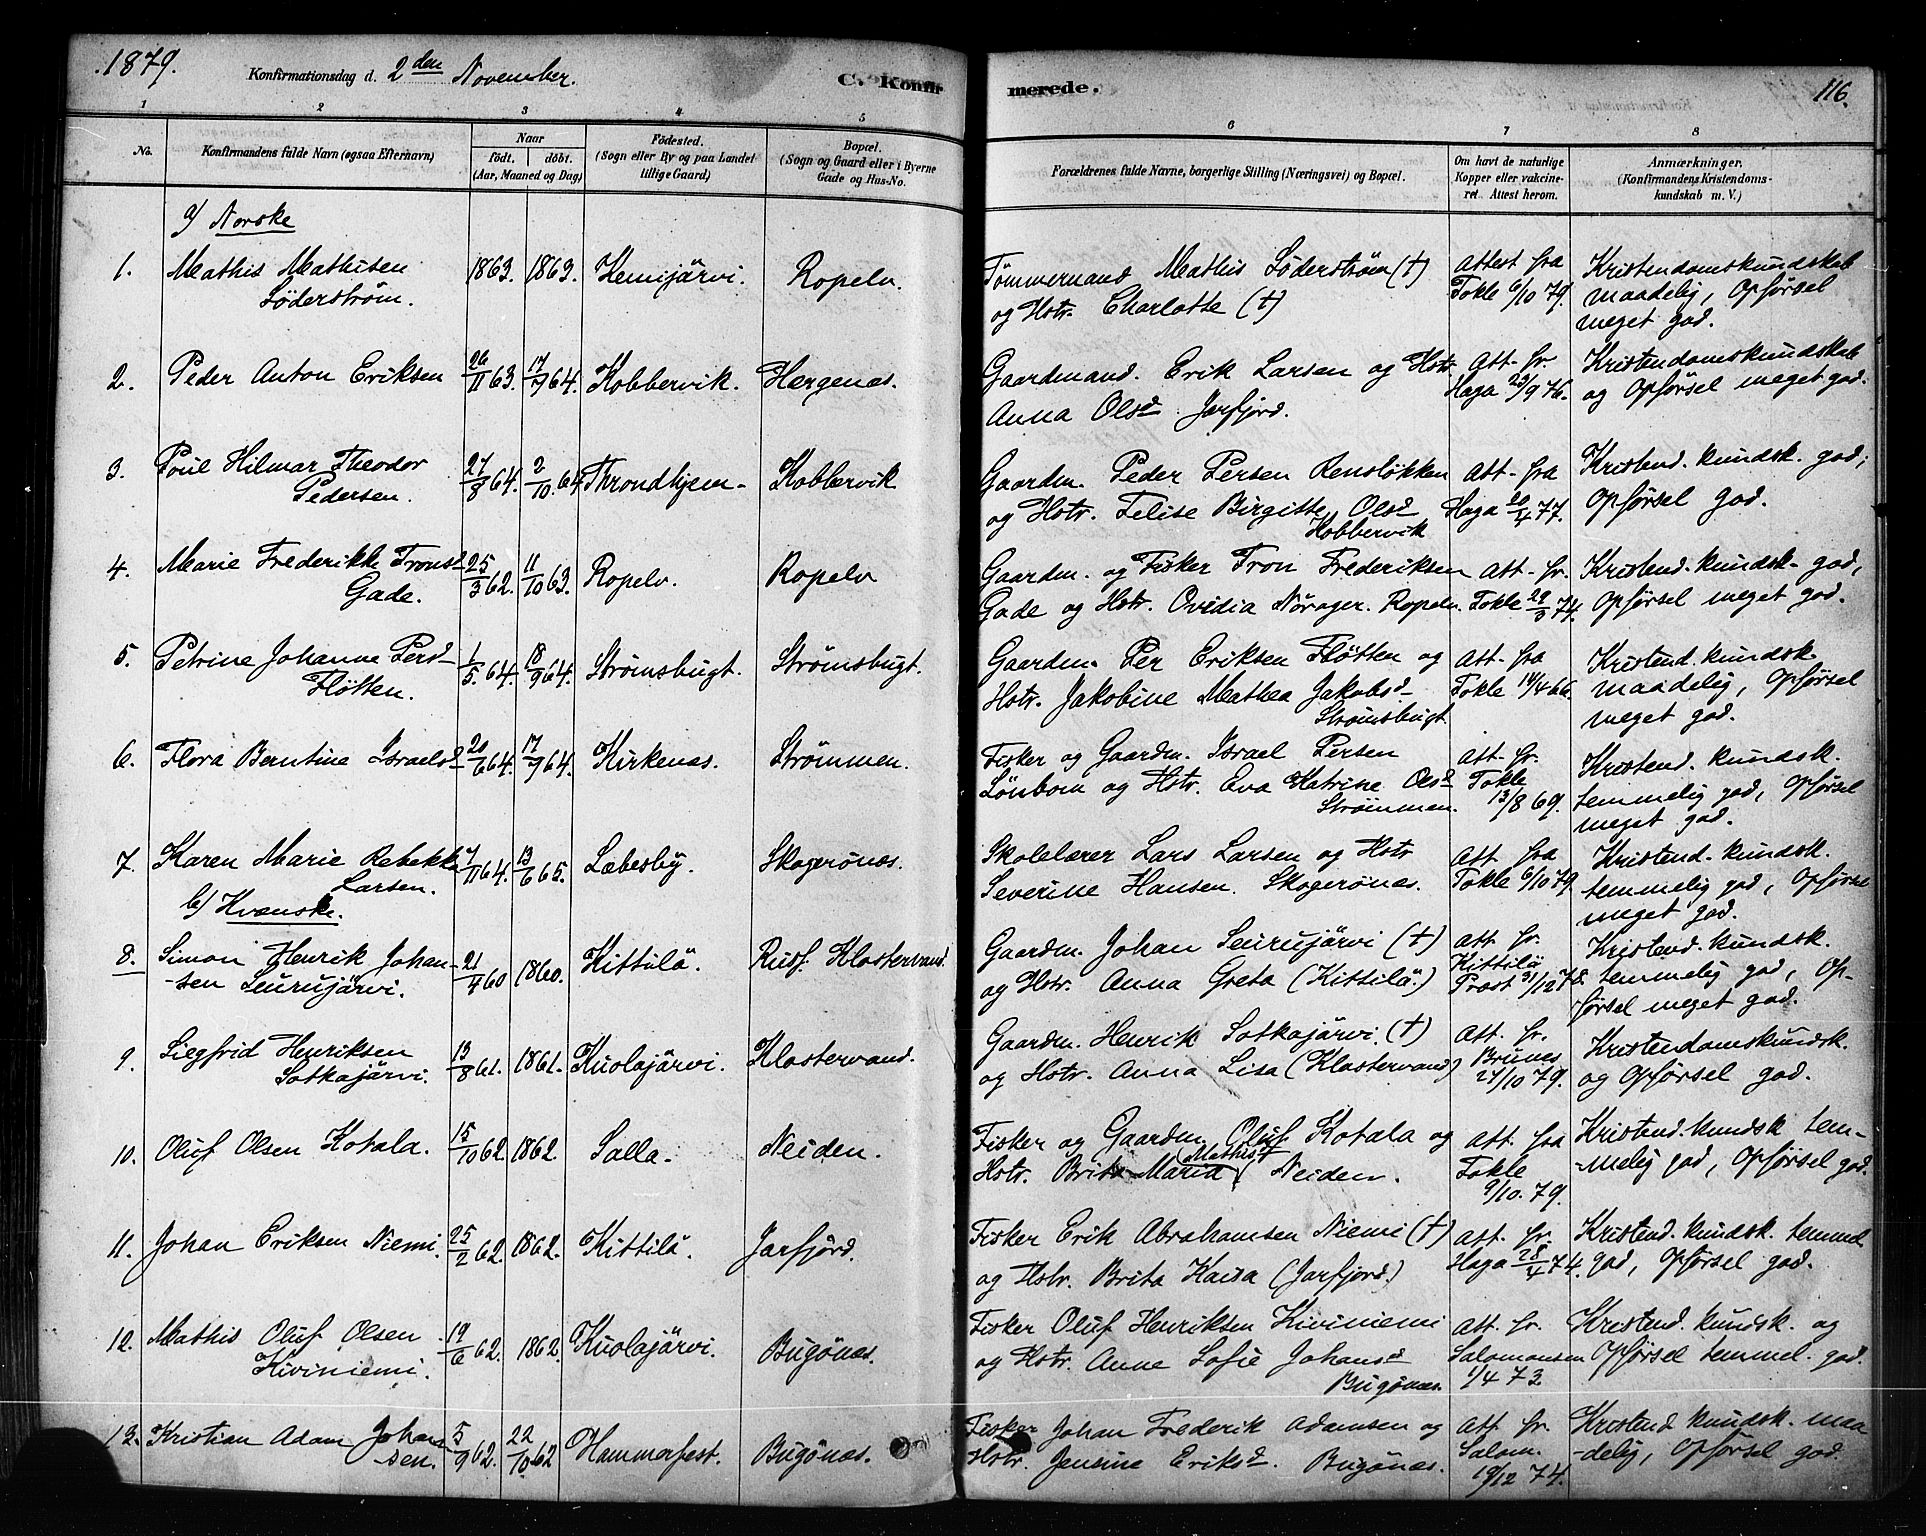 1879.
Konfirmationsdag d. 2den November.
C. Konfir
merede.
116.
1 2 3 4 5 6 7 8
No.
Konfirmandens fulde Navn (ogsaa Efternavn)
Naar
født. døbt.
(Aar, Maaned og Dag)
Fødested.
(Sogn eller By og paa Landet
tillige Gaard)
Bopæl.
(Sogn og Gaard eller i Byerne
Gade og Hus-No.
Forældrenes fulde Navne, borgerlige Stilling (Næringsvei) og Bopæl.
Om havt de naturlige
Kopper eller vakcine-
ret. Attest herom.
Anmærkninger.
(Konfirmandens Kristendoms-
kundskab m. V.)
a/ Norske
1. Mathis Mathisen 1863. 1863. Kemijärvi. Ropelv. Tømmermand Mathis Söderström (†) Attest fra Kristendomskundskab
Söderström. og Hstr. Charlotte (†) Tokle 6/10 79. maadelig, Opførsel
meget god.
2. Peder Anton Eriksen 26/11 63. 17/7 64. Kobbervik. Hergenæs. Gaardmand. Erik Larsen og Hstr. Att. fr. Kristendomskundskab
Anna Olsd Jarfjord. Haga 23/9 76. og Opførsel meget god.
3. Poul Hilmar Theodor 27/8 64. 2/10. 64 Throndhjem Kobbervik Gaardm. Peder Persen Rensløkken Att. fra Kristend. kundsk. god;
Pedersen. og Hstr. Felise Birgitte Olsd Haga 20/4 77. Opførsel god.
Kobbervik
4. Marie Frederikke Tronsd 25/3 62. 11/10 63. Ropelv. Ropelv Gaardm. og Fisker Tron Frederiksen Att. fr. Kristend. kundsk. god,
Gade. Gade og Hstr. Ovidia Nørager. Ropelv. Tokle 29/3 74. Opførsel meget god.
5. Petrine Johanne Persd 1/5. 64. 18/9 64. Strømsbugt. Strømsbugt. Gaardm. Per Eriksen Fløtten og Att. fra Kristend. kundsk.
Fløtten. Hstr. Jakobine Mathea Jakobsd Tokle 14/4 66. maadelig, Opførsel
Strømsbugt. meget god.
6. Flora Berntine Israelsd 20/6 64. 17/9 64. Kirkenæs. Strømmen. Fisker og Gaardm. Israel Persen Att. fr. Kristend. kundsk.
Lønbom og Hstr. Eva Katrine Olsd Tokle temmelig god, Opførsel
Strømmen. 13/8 69. meget god.
7. Karen Marie Rebekka 7/11 64. 13/6 65. Lebesby. Skogerönæs. Skolelærer Lars Larsen og Hstr Att. fra Kristend. kundsk.
Larsen. Severine Hansen. Skogerönæs. Tokle 6/10 79. temmelig god, Opførsel
meget god.
b/ Kvænske.
8. Simon Henrik Johan- 21/4 60 1860. Kittilä. Rusf. Klostervand. Gaardm. Johan Seurujärvi (†) Att. fr. Kristend. kundsk.
-sen Seurujärvi. og Hstr. Anna Greta (Kittilä.) Kittilä temmelig god, Op-
Prost 31/12 78. førsel meget god.
9. Siegfrid Henriksen 13/8 61. 1861. Kuolajärvi. Klostervand. Gaardm. Henrik Sotkajärvi. (†) Att. fr. Kristendomskundsk.
Sotkajärvi. og Hstr. Anna Lisa (Klostervand) Brunes og Opførsel god.
24/10 79.
10. Oluf Olsen Kotala. 15/10 62 1862. Salla. Neiden. Fisker og Gaardm. Oluf Kotala og Att. fra Kristend. kundsk tem-
Hstr. Brita Maria Mathisd Neiden. Tokle -melig god, Opførsel god.
9/10. 79.
11. Johan Eriksen Niemi. 25/2 62. 1862. Kittilä. Jarfjord. Fisker Erik Abrahamsen Niemi (†) Att. fr. Kristend. kundsk. temmel
og Hstr. Brita Kaisa (Jarfjord.) Haga 28/4 74. god, Opførsel god.
12. Mathis Oluf Olsen 19/6 62. 1862. Kuolajärvi. Bugönæs. Fisker Oluf Henriksen Kiviniemi Att. fr. Kristend. kundsk. og
Kiviniemi. og Hstr. Anne Sofie Johansd Salomonsen Opførsel temmel. god.
Bugönæs. 1/4 73.
13. Kristian Adam Johan 5/9 62. 22/10 62 Hammerfest. Bugönæs. Fisker Johan Frederik Adamsen og Att. fr. Kristend. kundsk. maa
-sen. Hstr. Jensine Eriksd. Bugönæs. Salom. -delig, Opførsel god.
19/12 74.